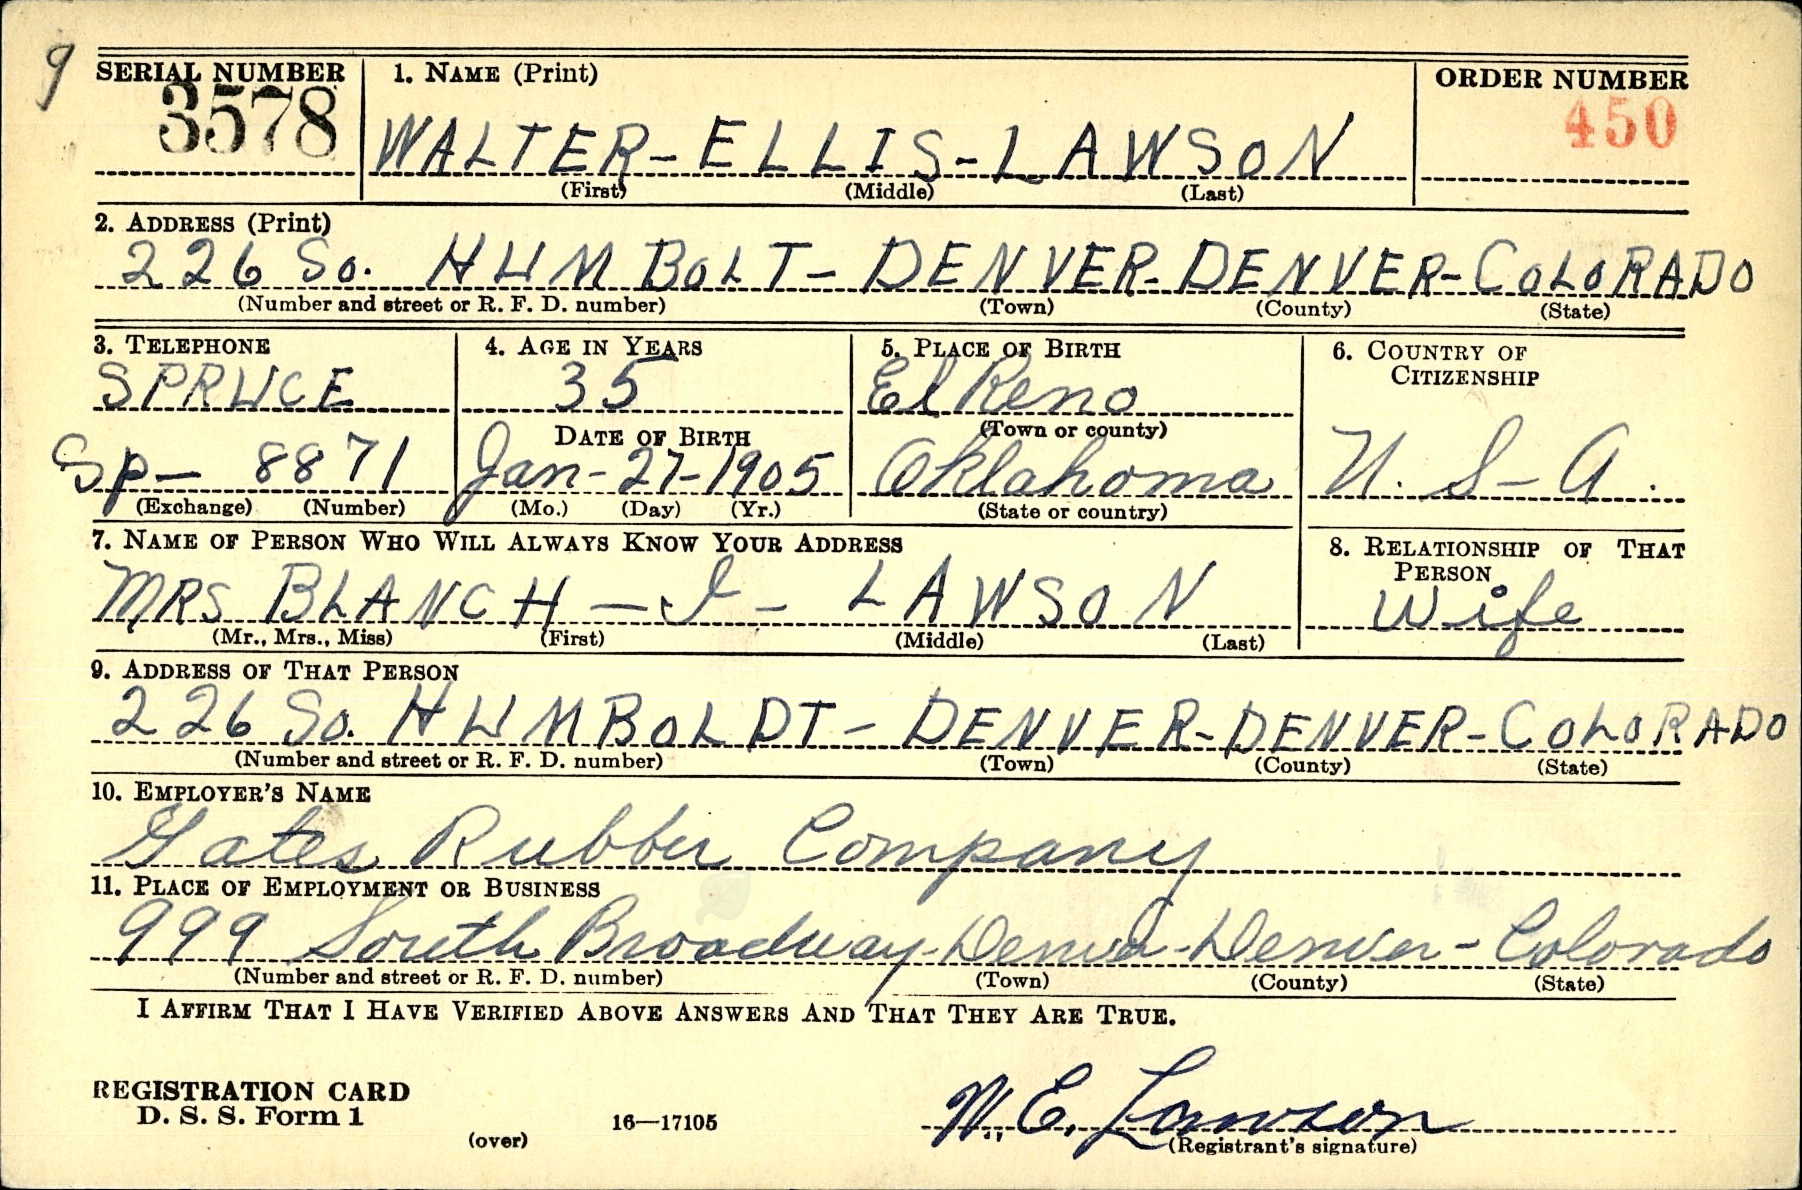 9
SERIAL NUMBER 1. NAME (Print) ORDER NUMBER
3578 WALTER - ELLIS - LAWSON 450
(First) (Middle) (Last)
2. ADDRESS (Print)
226 So. HUMBOLT - DENVER - DENVER - COLORADO
(Number and street or R. F. D. number) (Town) (County) (State)
3. TELEPHONE 4. AGE IN YEARS 5. PLACE OF BIRTH 6. COUNTRY OF CITIZENSHIP
SPRUCE 35 El Reno
DATE OF BIRTH (Town or county)
Sp- 8871 Jan - 27 - 1905 Oklahoma U. S - A.
(Exchange) (Number) (Mo.) (Day) (Yr.) (State or country)
7. NAME OF PERSON WHO WILL ALWAYS KNOW YOUR ADDRESS 8. RELATIONSHIP OF THAT PERSON
MRS BLANCH - I - LAWSON Wife
(Mr., Mrs., Miss) (First) (Middle) (Last)
9. ADDRESS OF THAT PERSON
226 So. HUMBOLDT - DENVER - DENVER - COLORADO
(Number and street or R. F. D. number) (Town) (County) (State)
10. EMPLOYER'S NAME
Gates Rubber Company
11. PLACE OF EMPLOYMENT OR BUSINESS
999 South Broadway - Denver - Denver - Colorado
(Number and street or R. F. D. number) (Town) (County) (State)
I AFFIRM THAT I HAVE VERIFIED ABOVE ANSWERS AND THAT THEY ARE TRUE.
REGISTRATION CARD
D. S. S. Form 1 16—17105 W. E. Lawson
(over) (Registrant's signature)